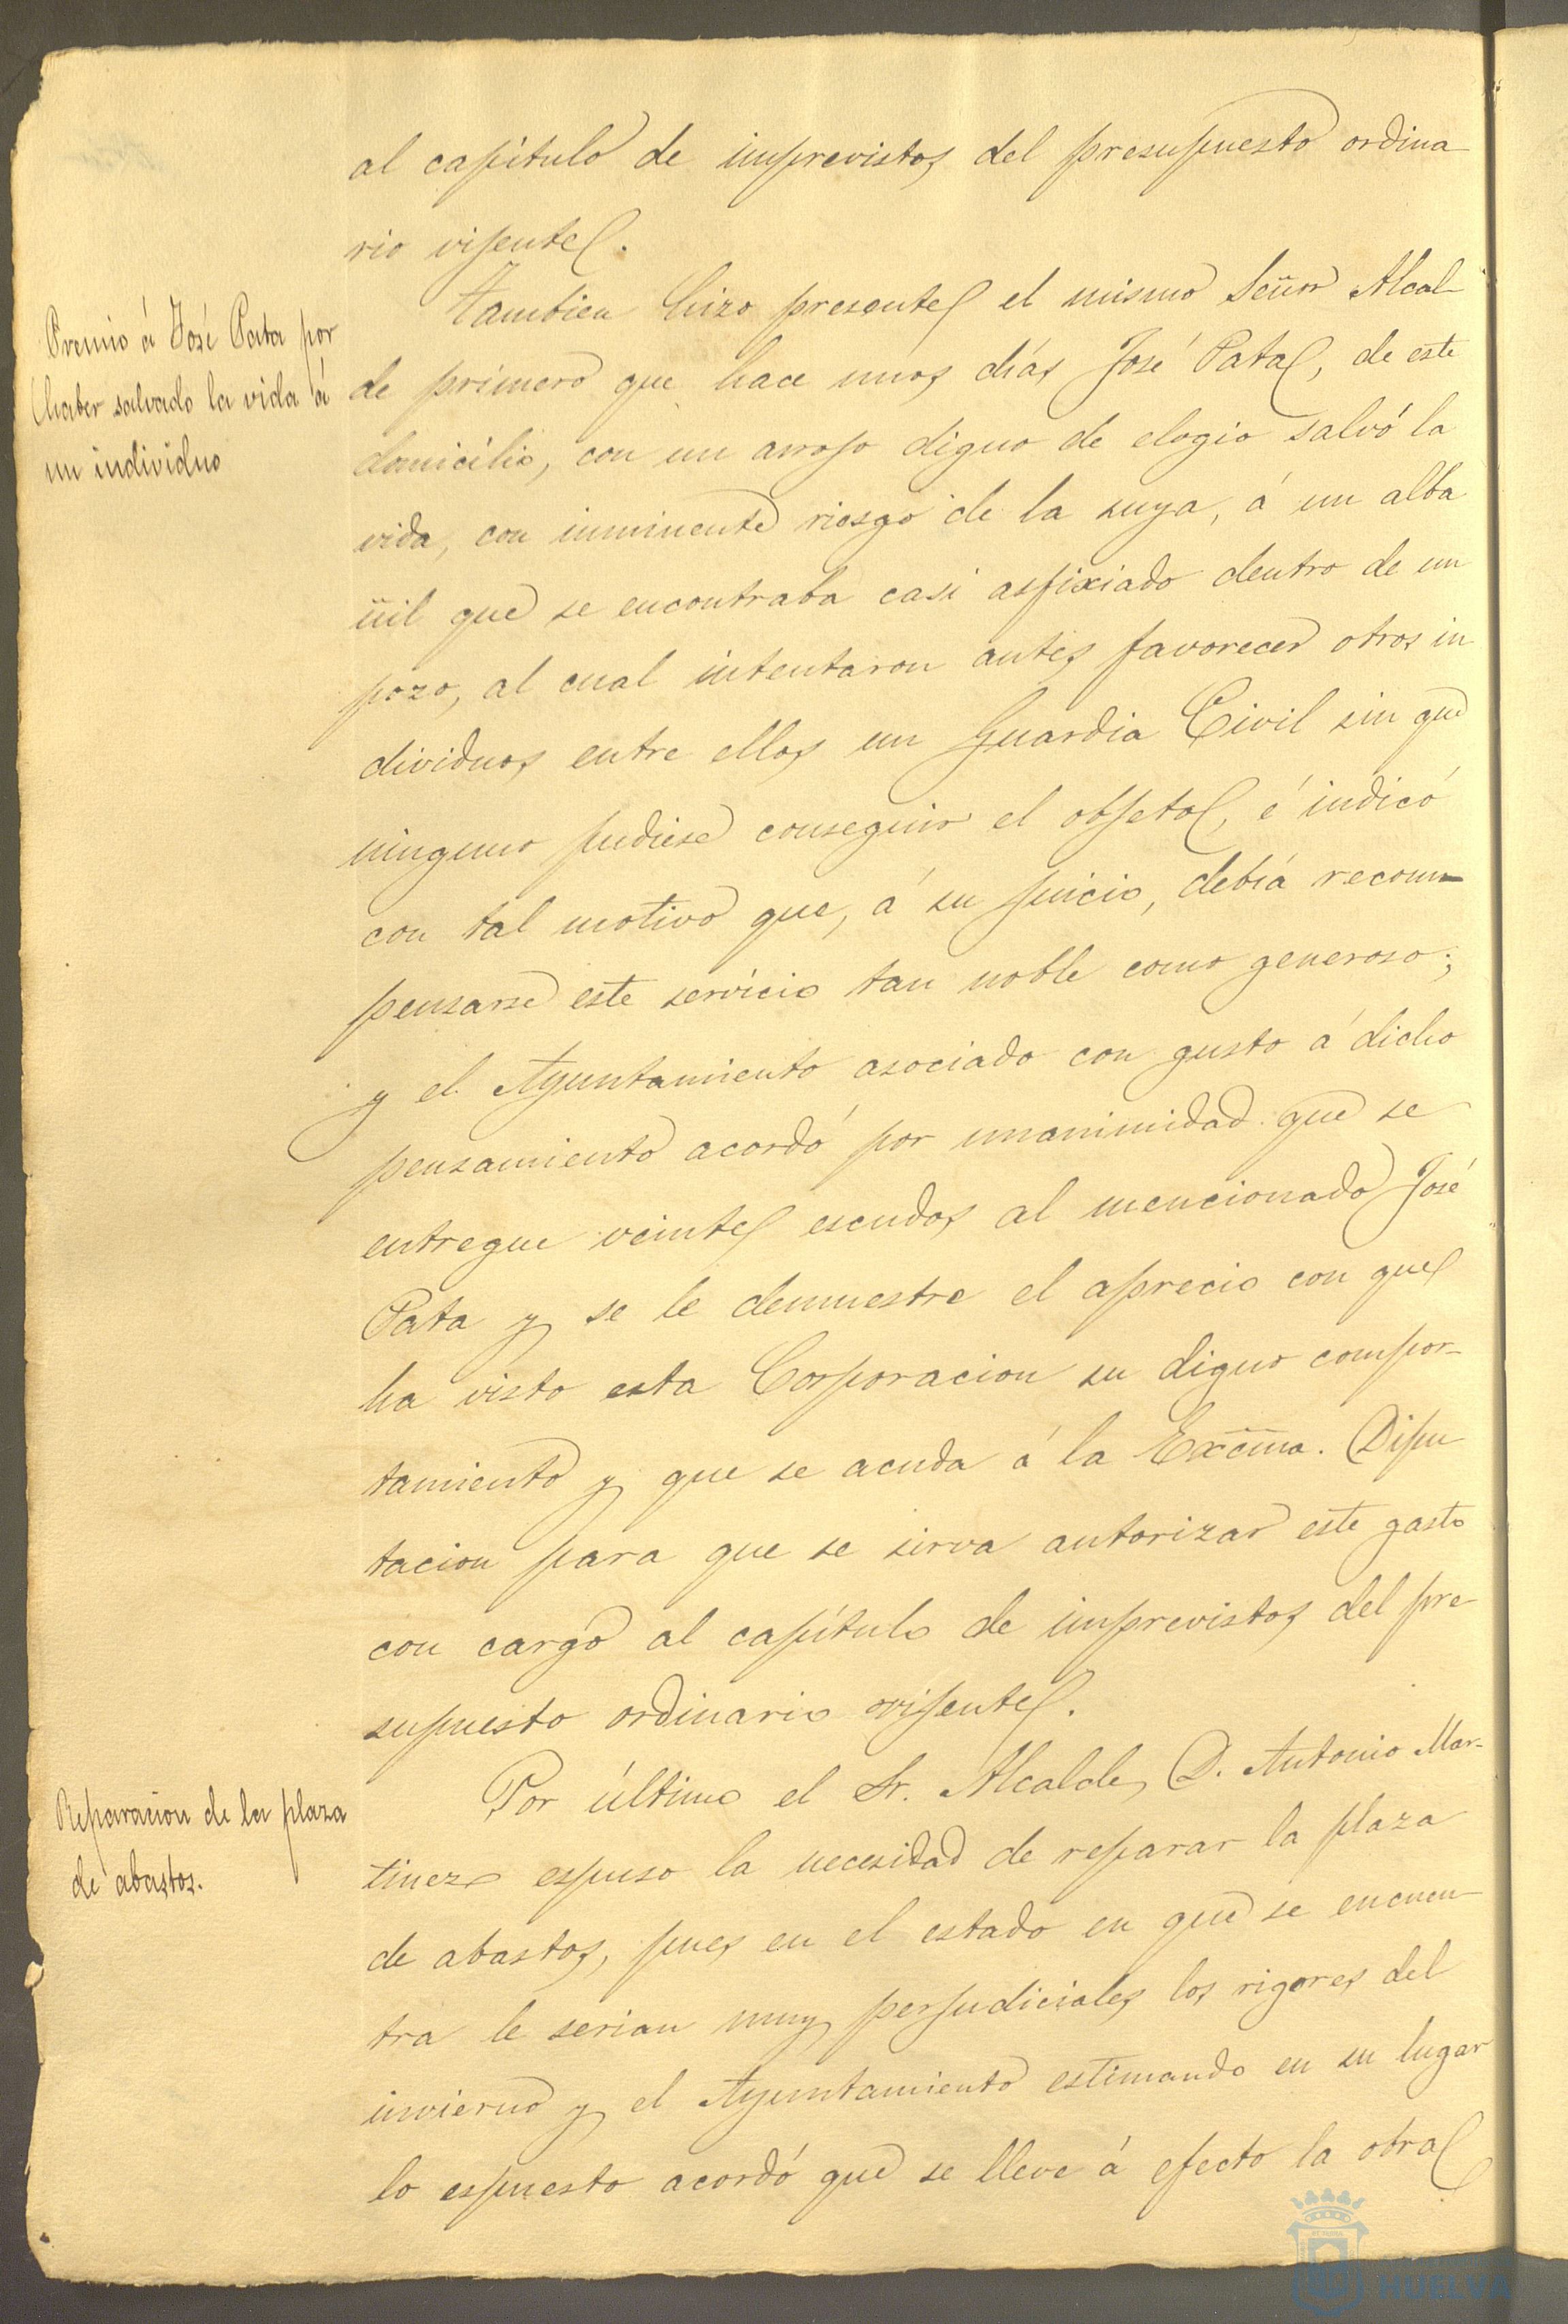 al capitulo de imprevistos del presupuesto ordina
rio vijente.
Premio á José Pata por
haber salvado la vida á
un individuo
Tambien hizo presente el mismo Señor Alcal-
de primero que hace unos dias José Pata, de este
domicilio, con un arrojo digno de elogio salvó la
vida, con inminente riesgo de la suya, á un alba
ñil que se encontraba casi asfixiado dentro de un
pozo, al cual intentaron antes favorecer otros in
dividuos entre ellos un Guardia Civil sin que
ninguno pudiese conseguir el objeto, é indicó
con tal motivo que, á su juicio, debia recom-
pensarse este servicio tan noble como generoso;
y el Ayuntamiento asociado con gusto á dicho
pensamiento acordó por unanimidad que se
entregue veinte escudos al mencionado José
Pata y se le demuestre el aprecio con que
ha visto esta Corporacion su digno compor-
tamiento y que se acuda á la Excma. Dipu
tacion para que se sirva autorizar este gasto
con cargo al capítulo de imprevistos del pre
supuesto ordinario vijente.
Reparacion de la plaza
de abastos.
Por último el Sr. Alcalde, D. Antonio Mar-
tinez espuso la necesidad de reparar la plaza
de abastos, pues en el estado en que se encuen-
tra le serian muy perjudiciales los rigores del
invierno y el Ayuntamiento estimando en su lugar
lo espuesto acordó que se lleve á efecto la obra
HUELVA